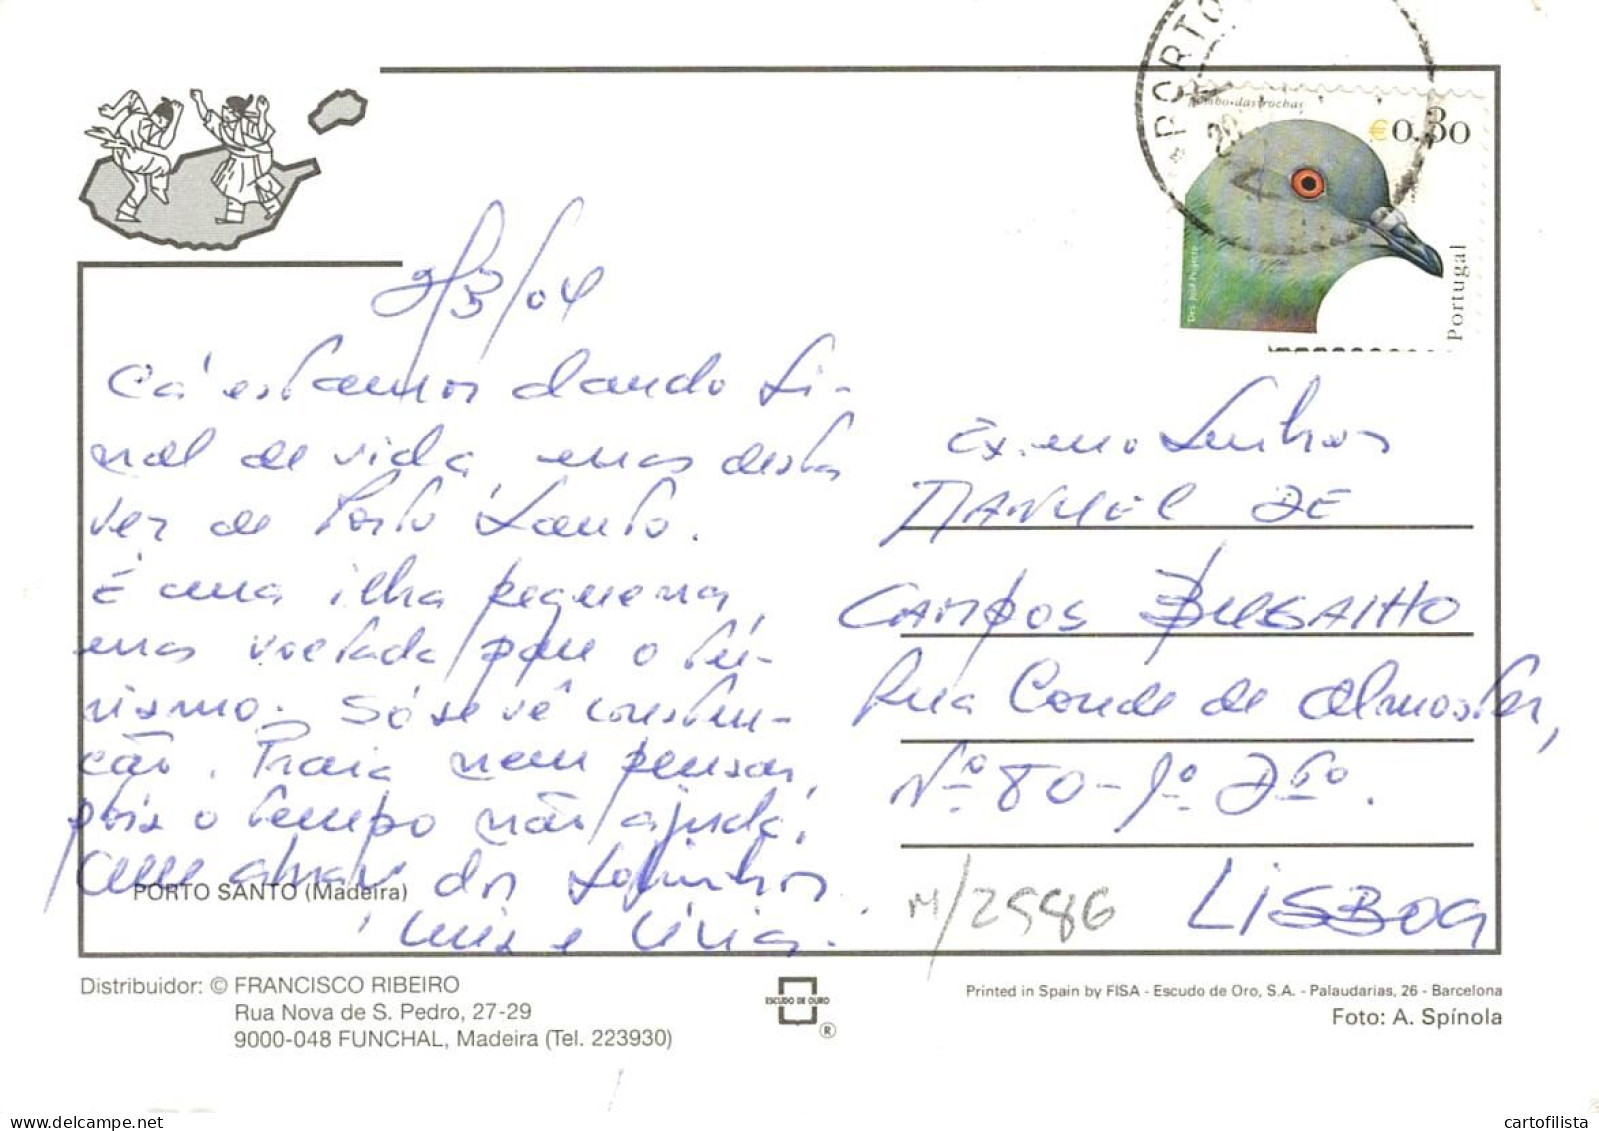 PORTO
Pombo-das-rochas
€0.30
Portugal
9/3/04
Cá estamos dando si-
nal de vida, mas desta
vez de Porto Santo.
É uma ilha pequena,
mas voltada para o tu-
rismo. Só se vê constru-
ção. Praia nem pensar,
pois o tempo não ajuda.
Um abraço dos sobrinhos
Luis e Lívia.
Ex.mo Senhor
MANUEL DE
CAMPOS
Rua Conde de Almoster,
Nº 80-1º Dtº.
LISBOA
M/2586
PORTO SANTO (Madeira)
Distribuidor: © FRANCISCO RIBEIRO
Rua Nova de S. Pedro, 27-29
9000-048 FUNCHAL, Madeira (Tel. 223930)
ESCUDO DE OURO
®
Printed in Spain by FISA - Escudo de Oro, S.A. - Palaudarias, 26 - Barcelona
Foto: A. Spínola
delcampe.net
cartofilista